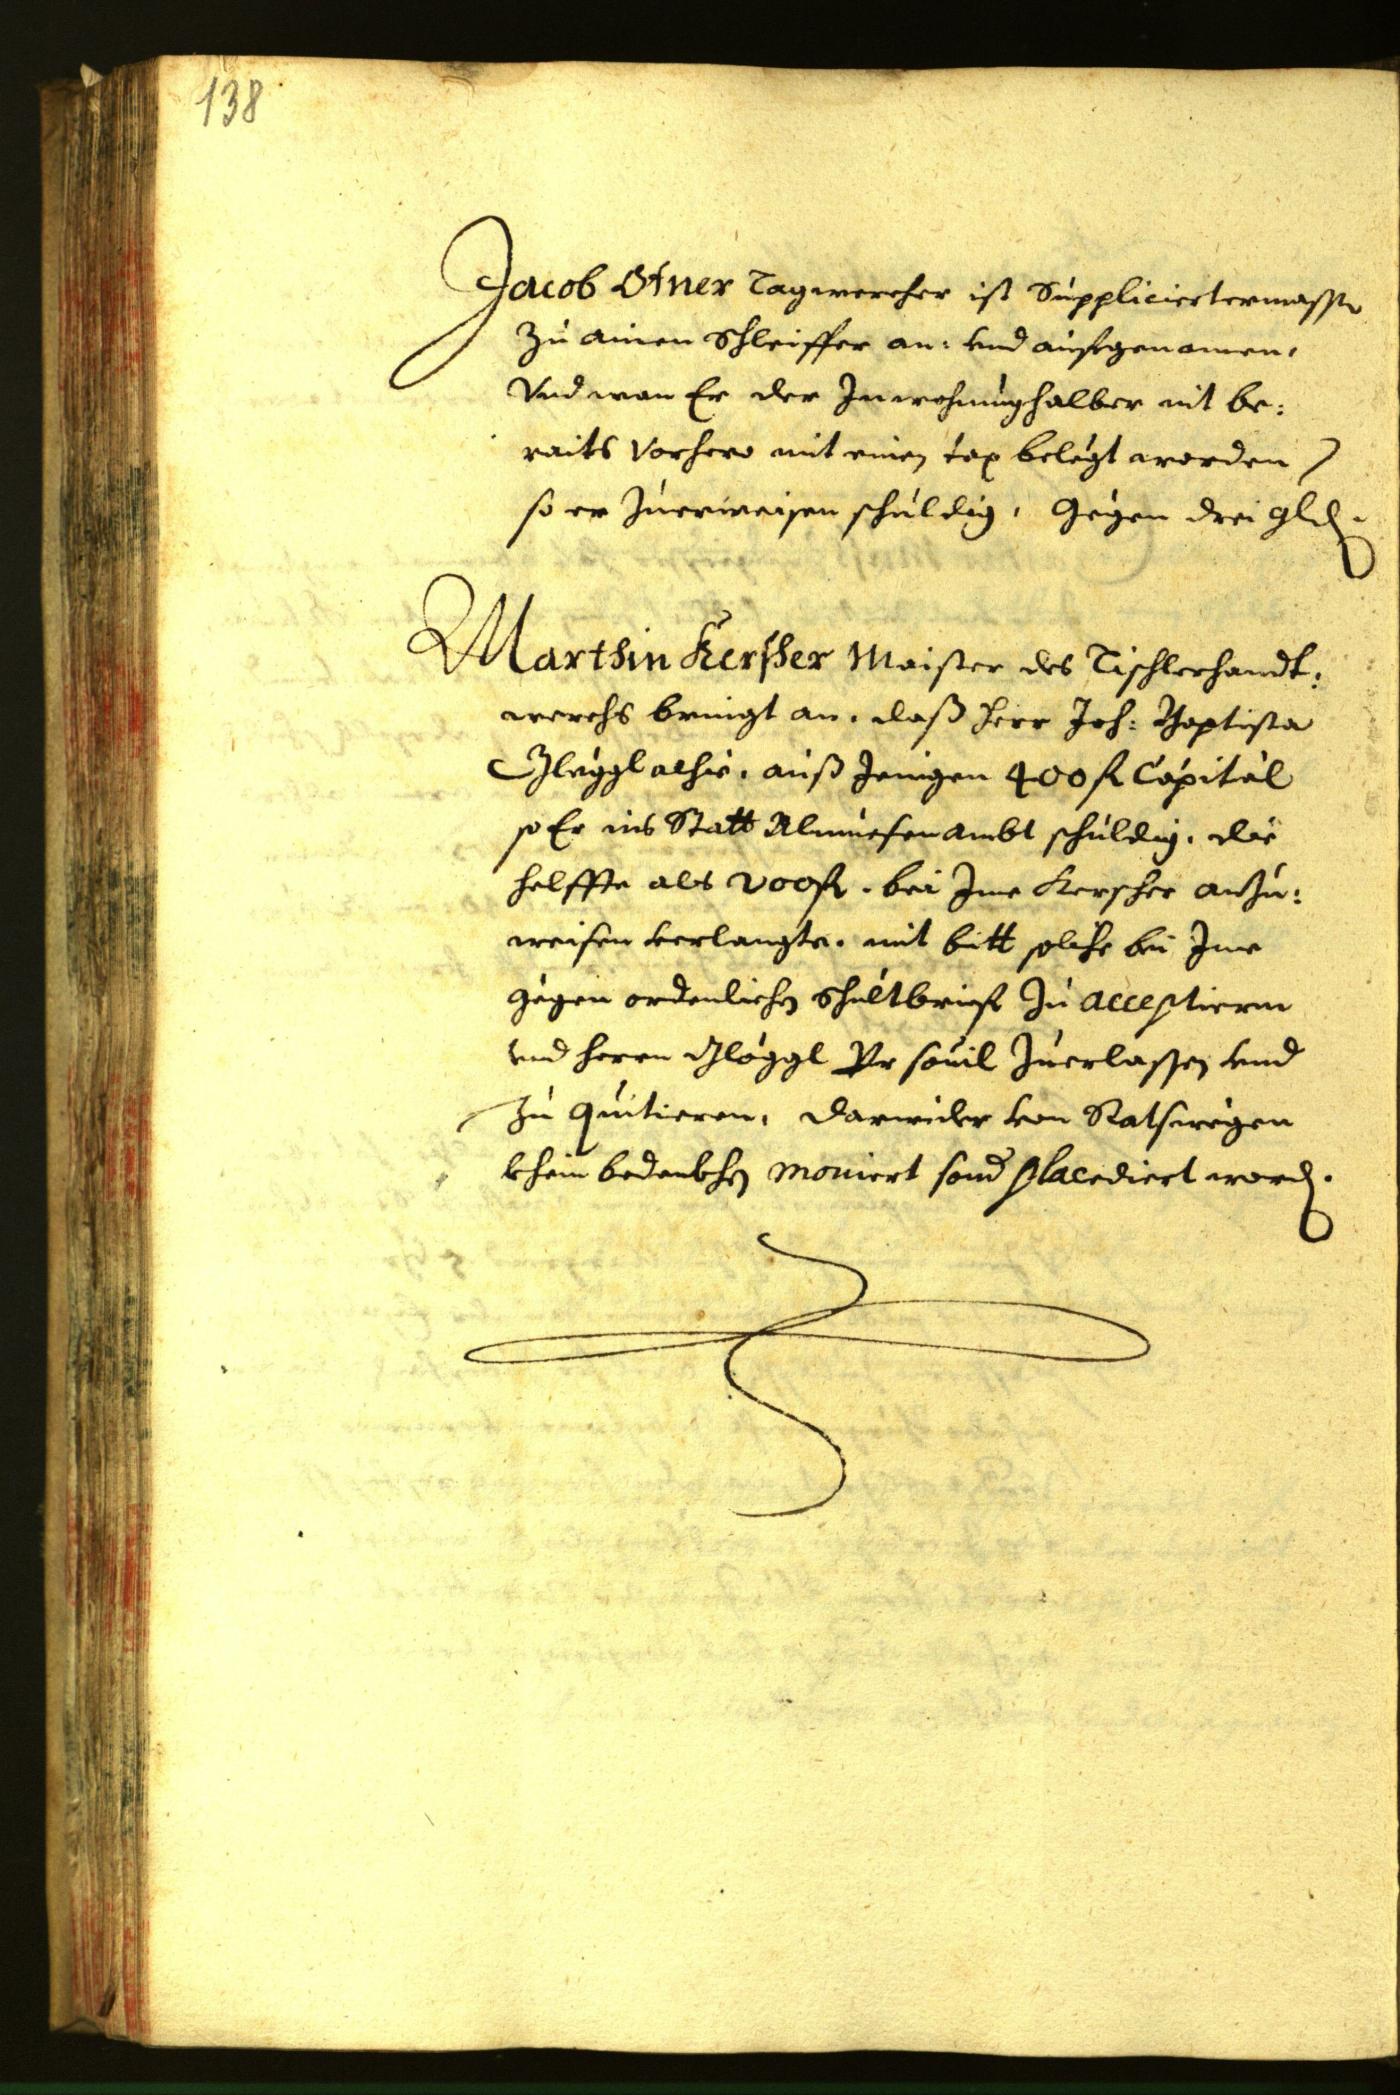 138
Jacob Ofner Tagwercher ist Suppliciertermassen
zu ainen Schleiffer an: vnd aufgenomen,
Vnd wan Er der Inwohnung halber nit be:
raits vorhero mit einen tax belegt worden
so er zuerweisen schuldig, gegen drei gld.
Marthin Kerscher Maister des Tischlerhandt:
werchs bringt an, daß Herr Joh: Baptista
Gleggl alhie, auß Jenigen 400 fl Capital
so Er ins Statt Almuesenambt schuldig, die
helffte als 200 fl. bei Ime Kerscher anzu:
weisen verlangte, mit bitt solche bei Ime
gegen ordenlichen Schultbrief zu acceptiern
vnd herrn Glöggl Pr souil zuerlassen vnd
zu quitieren, darwider von Ratswegen
khein bedenkhen moviert sond placediert word.